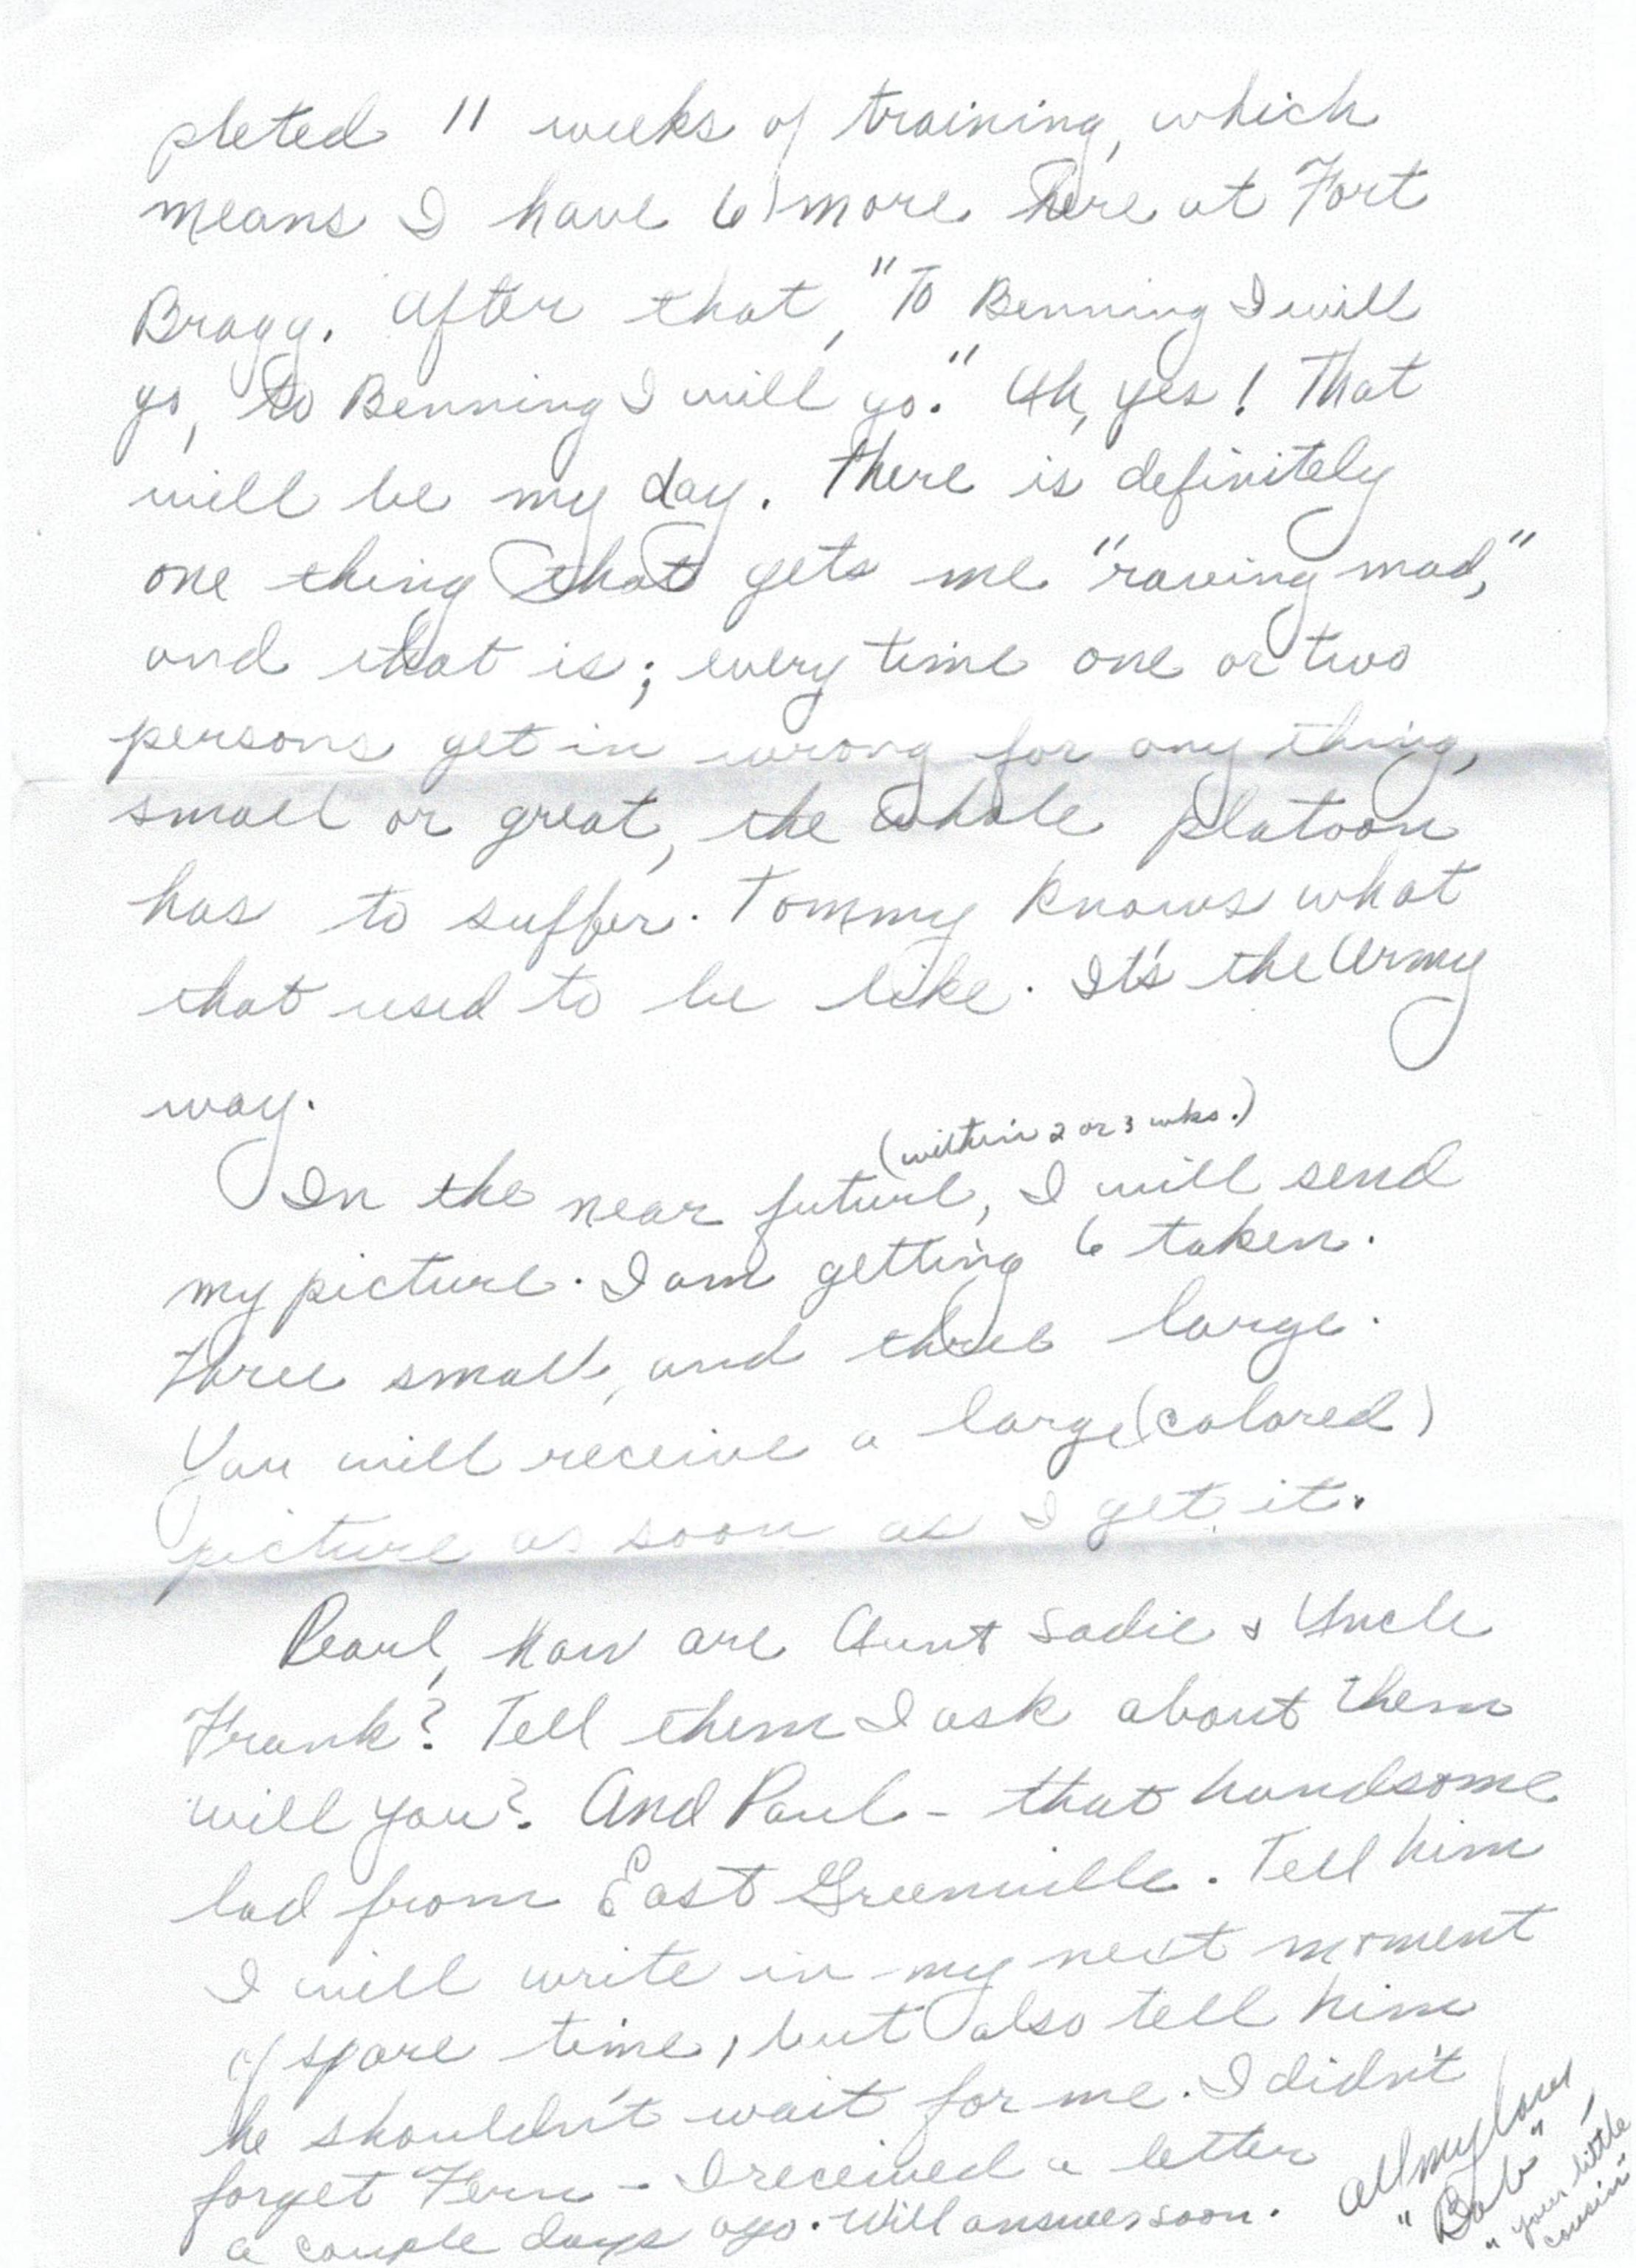 pleted 11 weeks of training, which
means I have 6 more here at Fort
Bragg. After that, "To Benning I will
go, to Benning I will go." Uh, yes! That
will be my day. There is definitely
one thing that gets me "raving mad,"
and that is; every time one or two
persons get in wrong for any thing,
small or great, the whole platoon
has to suffer. Tommy knows what
that used to be like. It's the Army
way.
(within 2 or 3 wks.)
In the near future, I will send
my picture. I am getting 6 taken.
Three small, and three large.
You will receive a large (colored)
picture as soon as I get it.
Pearl, how are Aunt Sadie & Uncle
Frank? Tell them I ask about them
will you? And Paul - that handsome
lad from East Greenville. Tell him
I will write in my next moment
of spare time, but also tell him
he shouldn't wait for me. I didn't
forget Fern - I received a letter
a couple days ago. Will answer soon.
All my love,
"Bob"
"your little
cousin"